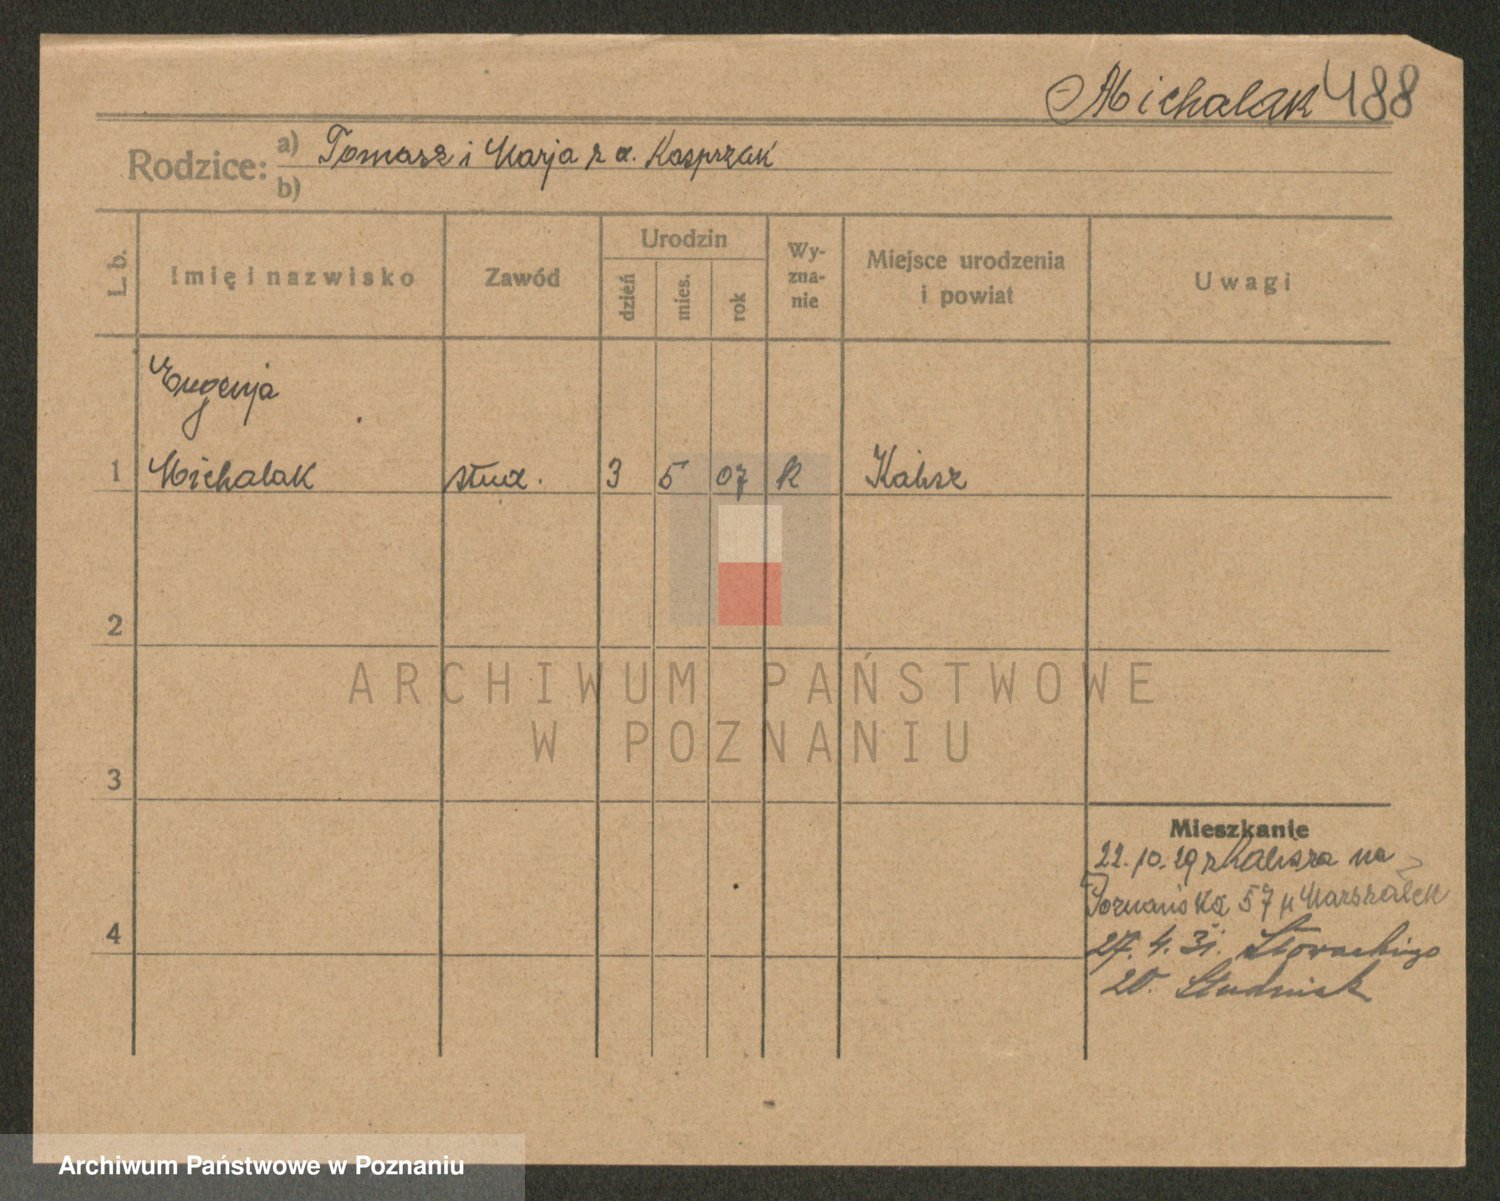 Michalak 488
Rodzice: a) Tomasz i Marja z d. Kasprzak
b)
L. b.
Imię i nazwisko
Zawód
Urodzin
dzień
mies.
rok
Wy-
zna-
nie
Miejsce urodzenia
i powiat
Uwagi
Eugenja
1 Michalak stud. 3 5 07 k Kalisz
2
ARCHIWUM PAŃSTWOWE
W POZNANIU
3
Mieszkanie
22.10.29 z Kalisza na
Poznańska 57 u Marszałek
4
27.4.31. Słowackiego
20. Studniak
Archiwum Państwowe w Poznaniu